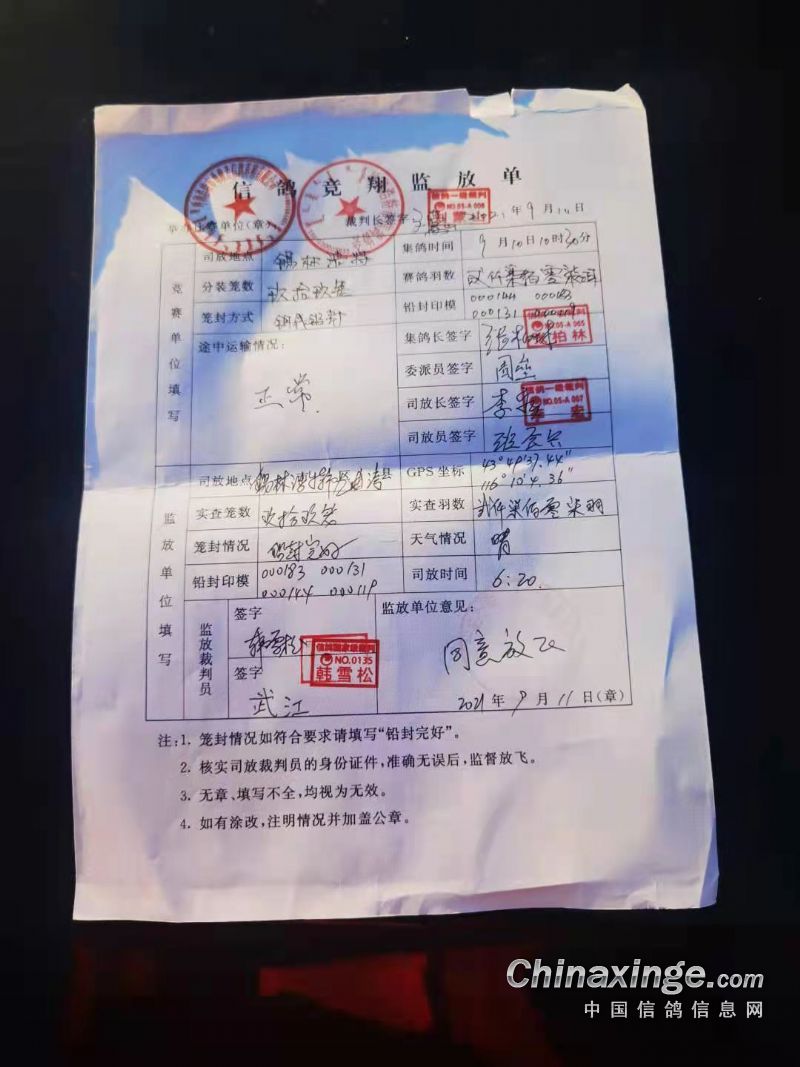 信鸽竞翔监放单
主赛单位(章) 裁判长签字 年9月10日
司放地点 锡林浩特 集鸽时间 9月10日10时30分
竞赛单位填写
分装笼数 玖拾玖笼 赛鸽羽数 贰仟柒佰零柒羽
笼封方式 铅封印模 000144 000183
000131 000119
途中运输情况: 正常. 集鸽长签字
委派员签字
司放长签字
信鸽一级裁判
NO.05-A 065
信鸽一级裁判
NO.05-A 067
司放员签字
监放单位填写
司放地点 GPS坐标 43°49′37.44″
116°10′4.36″
实查笼数 玖拾玖笼 实查羽数 贰仟柒佰零柒羽
笼封情况 铅封完好 天气情况 晴
铅封印模 000183 000131
000144 000119
司放时间 6:20.
监放裁判员
签字 韩雪松
信鸽国家级裁判
NO.0135
韩雪松
签字 武江
监放单位意见:
同意放飞
2021年9月11日(章)
注:1. 笼封情况如符合要求请填写“铅封完好”。
2. 核实司放裁判员的身份证件,准确无误后,监督放飞。
3. 无章、填写不全,均视为无效。
4. 如有涂改,注明情况并加盖公章。
Chinaxinge.com
中国信鸽信息网